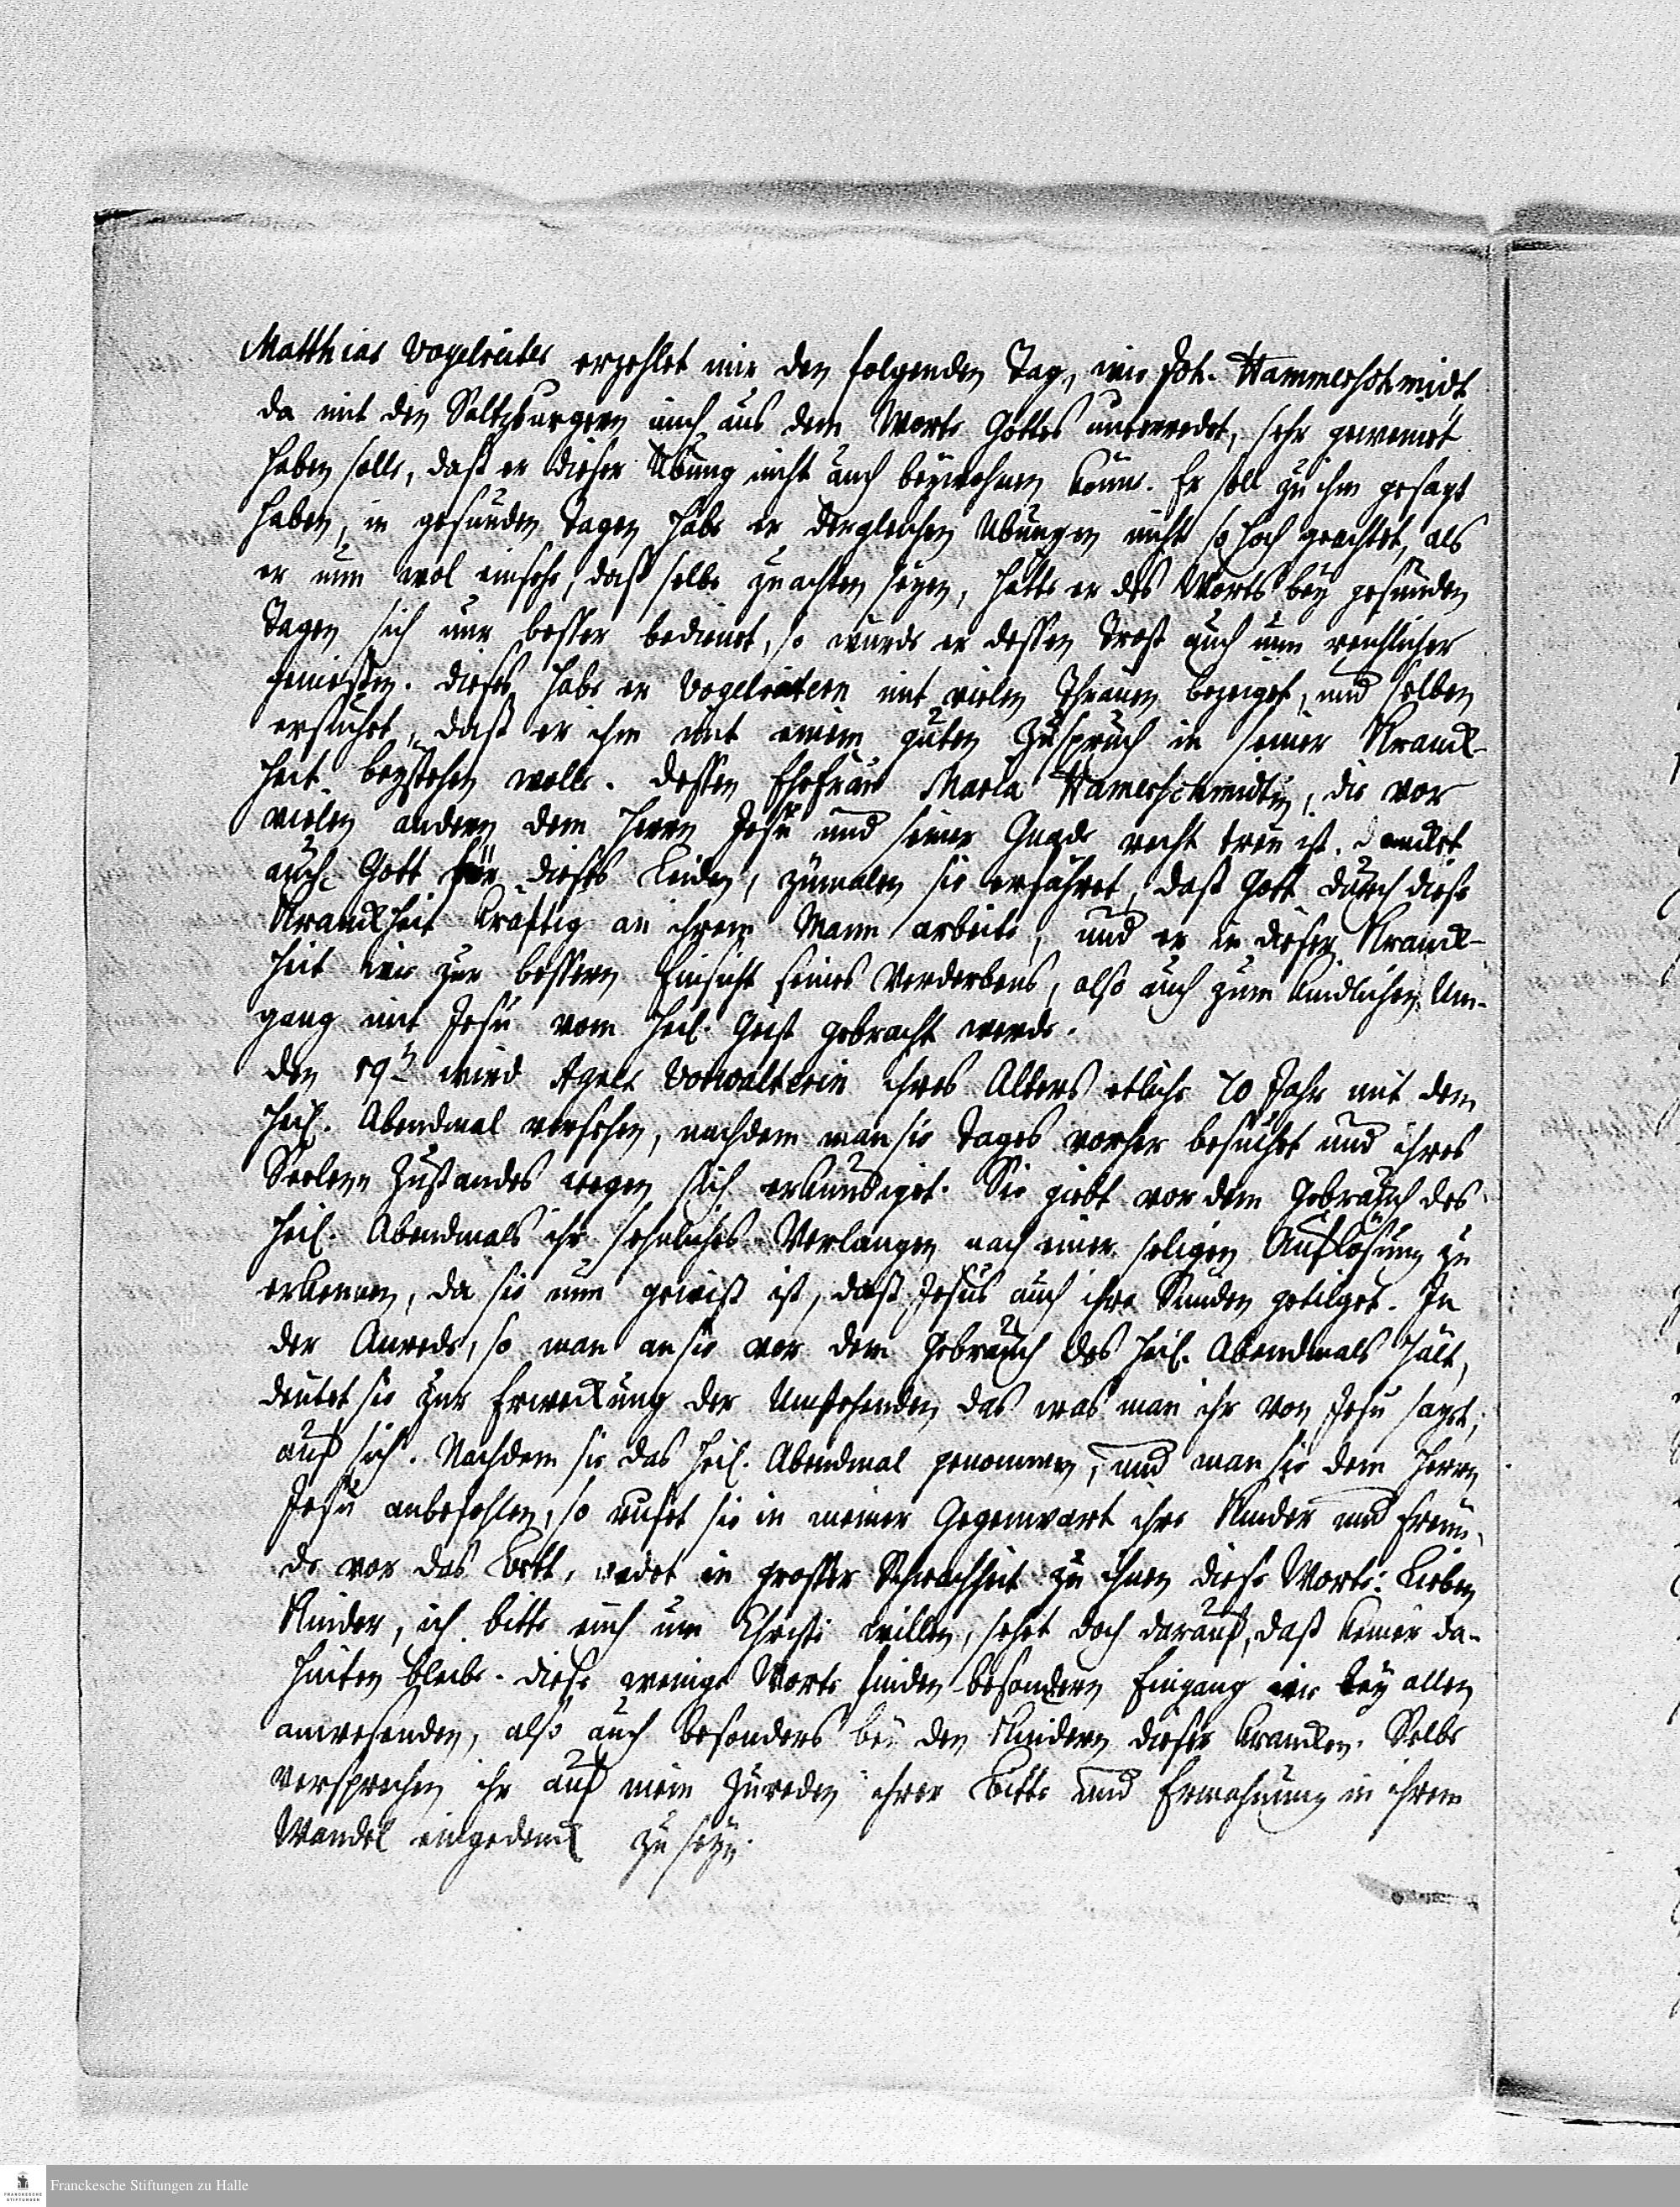 Matthias Vogelreiter erzehlet mir den folgenden Tag, wie Joh. Hammerschmidt
da mit den Saltzburgern mich aus dem Worte Gottes unterredet, sehr geweinet
haben solle, daß er dieser Übung nicht auch beywohnen könne. Er soll zu ihm gesagt
haben, in gesunden Tagen habe er dergleichen Übungen nicht so hoch geachtet, als
er nun wol einsehe, daß selbe zu achten seyen, hätte er des Worts bey gesunden
Tagen sich nur besser bedienet, so würde er dessen Trost auch nun reichlicher
geniessen. Dieses habe er Vogelreitern mit vielen Thränen bezeiget, und selben
ersuchet, daß er ihm mit einem guten Zuspruch in seiner Kranck-
heit beystehen wolle. Dessen Ehefrau Maria Hamerschmidtin, die vor
vielen andern dem Herrn Jesu und seiner Gnade recht treu ist, dancket
auch Gott für dieses Leiden, zumalen sie erfähret, daß Gott durch diese
Kranckheit kräftig an ihrem Mann arbeite, und er in dieser Kranck-
heit wie zur bessern Einsicht seines Verderbens, also auch zum kindlichen Um-
gang mit Jesu vom Heil. Geist gebracht werde.
Den 19n wird Agele Vorwalterin ihres Alters etliche 70 Jahr mit dem
Heil. Abendmal versehen, nachdem man sie Tages vorher besuchet und ihres
Seelen Zustandes wegen sich erkundiget. Sie giebt vor dem Gebrauch des
Heil. Abendmals ihr sehnliches Verlangen nach einer seligen Auflösung zu
erkennen, da sie nun gewiß ist, daß Jesus auch ihre Sünden getilget. In
der Anrede, so man an sie vor dem Gebrauch des Heil. Abendmals hält,
deutet sie zur Erweckung der Umstehenden das was man ihr von Jesu sagt,
auf sich. Nachdem sie das Heil. Abendmal genommen, und man sie dem Herrn
Jesu anbefohlen, so rufet sie in meiner Gegenwart ihre Kinder und Freun-
de vor das Bett, redet in grosser Schwachheit zu ihnen diese Worte: Lieben
Kinder, ich bitte euch um Christi willen, sehet doch darauf, daß keiner da-
hinten bleibe. Diese wenige Worte finden besondern Eingang wie bey allen
anwesenden, also auch besonders bey den Kindern dieser Krancken. Selbe
versprechen ihr auf mein Zureden ihrer Bitte und Ermahnung in ihrem
Wandel eingedenck zu seyn.
Franckesche Stiftungen zu Halle